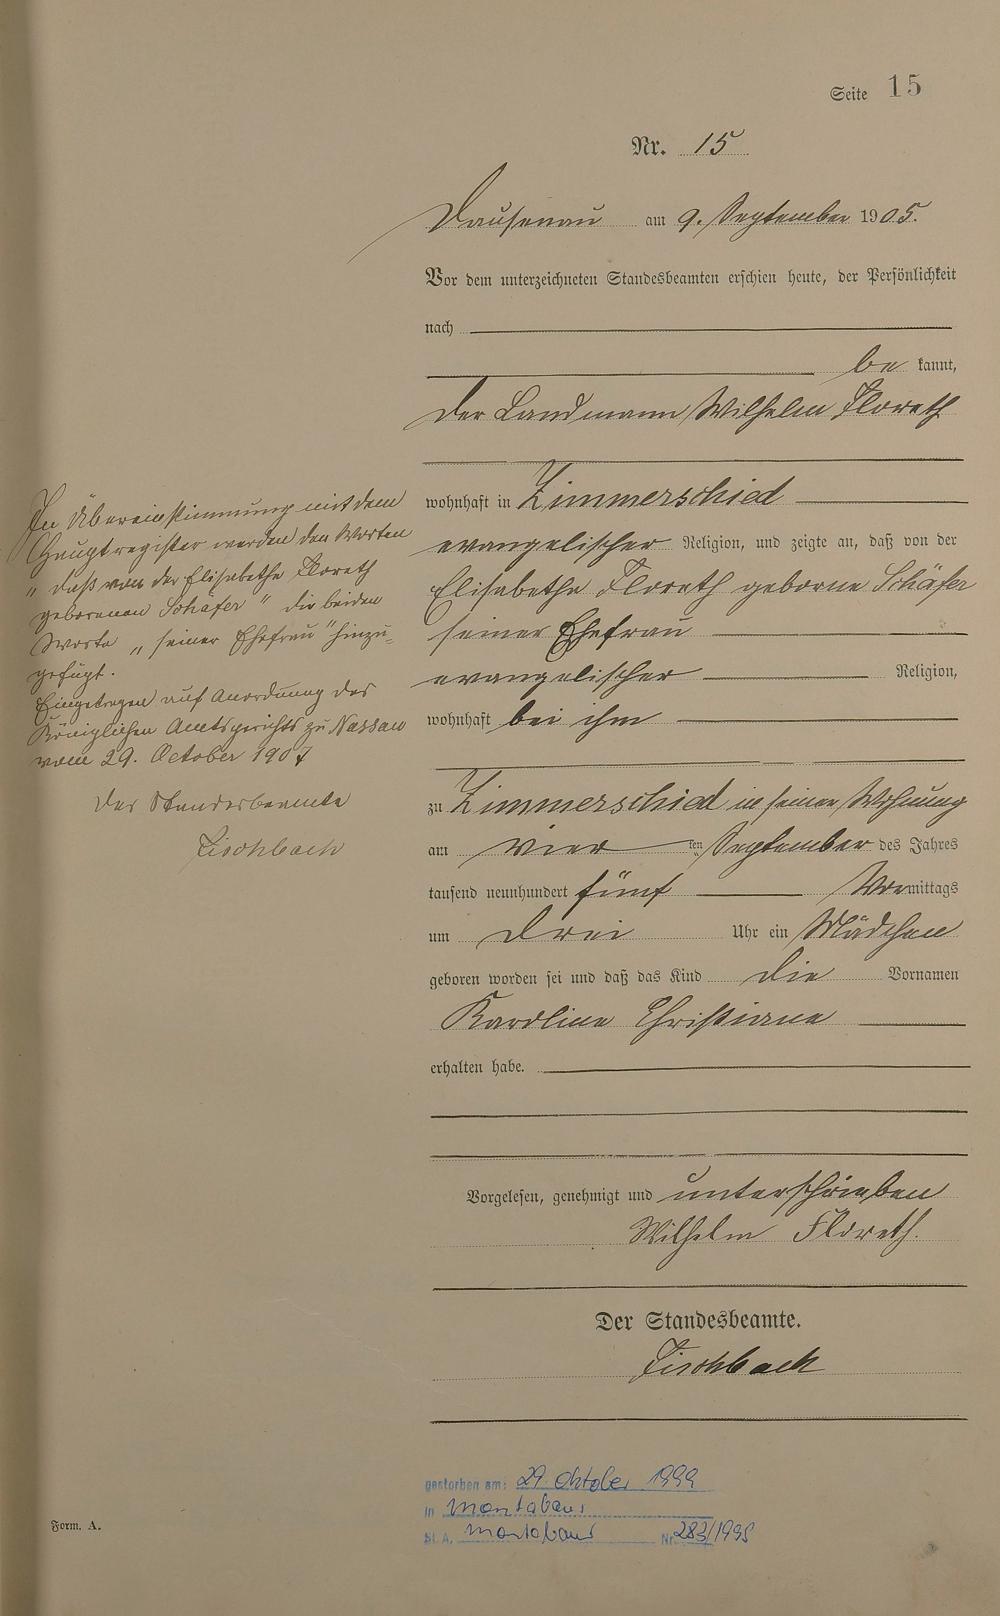 Seite 15
Nr. 15
Dausenau am 9. September 1905.
Vor dem unterzeichneten Standesbeamten erschien heute, der Persönlichkeit
nach
be kannt,
der Landmann Wilhelm Floreth
wohnhaft in Zimmerschied
evangelischer Religion, und zeigte an, daß von der
Elisabethe Floreth geborne Schäfer
seiner Ehefrau
evangelischer Religion,
wohnhaft bei ihm
zu Zimmerschied in seiner Wohnung
am vier ten September des Jahres
tausend neunhundert fünf Vormittags
um drei Uhr ein Mädchen
geboren worden sei und daß das Kind die Vornamen
Karoline Christiane
erhalten habe.
Vorgelesen, genehmigt und unterschrieben
Wilhelm Floreth.
Der Standesbeamte.
Fischbach
In Übereinstimmung mit dem
Hauptregister werden den Worten
„daß von der Elisabethe Floreth
geborenen Schäfer" die beiden
Worte „seiner Ehefrau" hinzu-
gefügt.
Eingetragen auf Anordnung des
Königlichen Amtsgerichts zu Nassau
vom 29. October 1907
Der Standesbeamte
Fischbach
gestorben am: 29. Oktober
in Montabaur
St. A. Montabaur Nr.
Form. A.